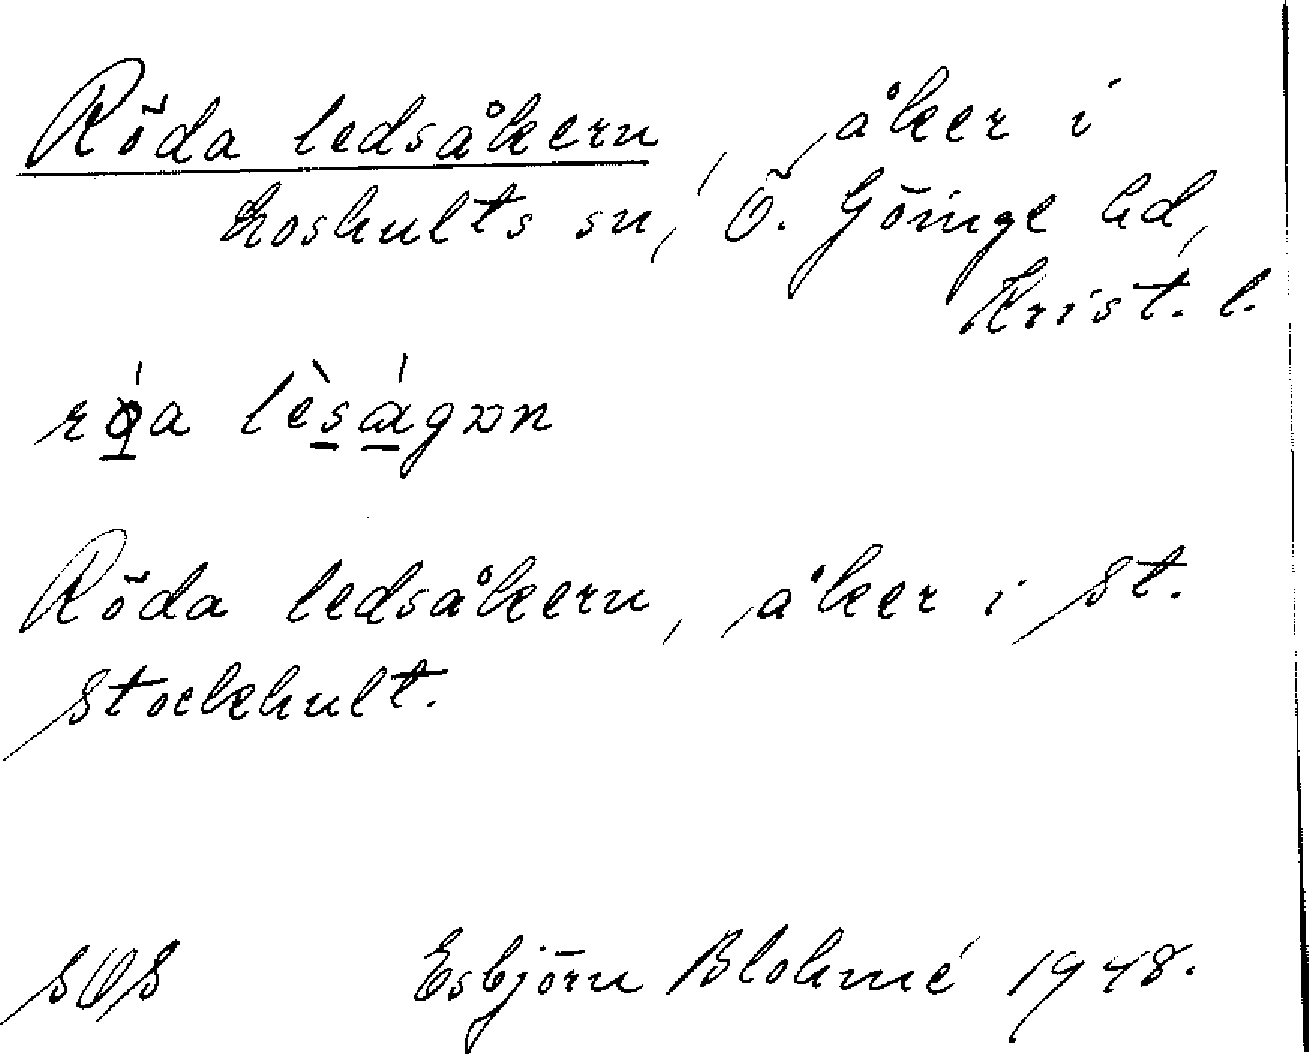 Röda ledsåkern, åker i
Loshults sn, Ö. Göinge hd,
Krist. l.
Röda ledsåkern, åker i St.
Stockhult.
SOS Esbjörn Blohmé 1948.